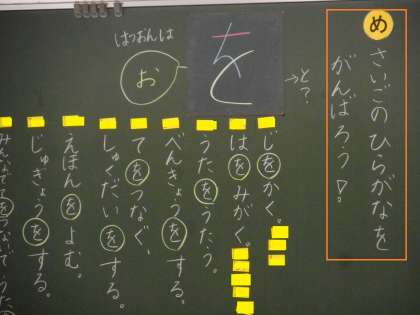 め
さいごのひらがなを
がんばろう！
はつおんは
お
を
→と？
じをかく。
はをみがく。
うたをうたう。
べんきょうをする。
てをつなぐ。
しゅくだいをする。
えほんをよむ。
じゅぎょうをする。